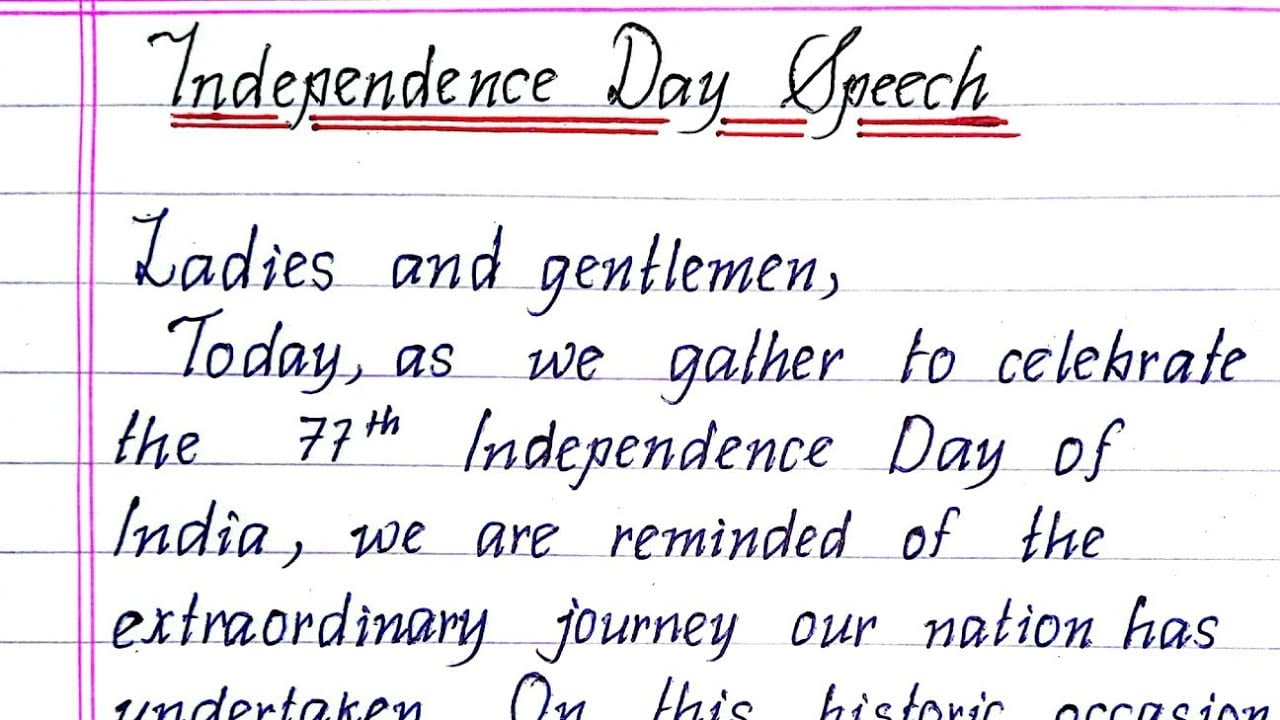 Independence Day Speech
Ladies and gentlemen,
Today, as we gather to celebrate
the 77th Independence Day of
India, we are reminded of the
extraordinary journey our nation has
undertaken. On this historic occasion